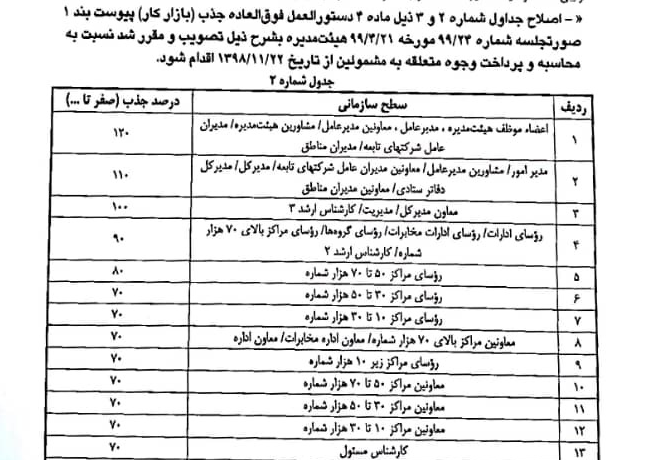 « - اصلاح جداول شماره ۲ و ۳ ذیل ماده ۴ دستورالعمل فوق‌العاده جذب (بازار کار) پیوست بند ۱
صورتجلسه شماره ۹۹/۲۴ مورخه ۹۹/۴/۲۱ هیئت‌مدیره بشرح ذیل تصویب و مقرر شد نسبت به
محاسبه و پرداخت وجوه متعلقه به مشمولین از تاریخ ۱۳۹۸/۱۱/۲۲ اقدام شود.
جدول شماره ۲
ردیف سطح سازمانی درصد جذب (صفر تا ...)
۱ اعضاء موظف هیئت‌مدیره ، مدیرعامل ، معاونین مدیرعامل/ مشاورین هیئت‌مدیره/ مدیران ۱۲۰
عامل شرکتهای تابعه/ مدیران مناطق
۲ مدیر امور/ مشاورین مدیرعامل/ معاونین مدیران عامل شرکتهای تابعه/ مدیرکل/ مدیرکل ۱۱۰
دفاتر ستادی/ معاونین مدیران مناطق
۳ معاون مدیرکل/ مدیریت/ کارشناس ارشد ۳ ۱۰۰
۴ رؤسای ادارات/ رؤسای ادارات مخابرات/ رؤسای گروه‌ها/ رؤسای مراکز بالای ۷۰ هزار ۹۰
شماره/ کارشناس ارشد ۲
۵ رؤسای مراکز ۵۰ تا ۷۰ هزار شماره ۸۰
۶ رؤسای مراکز ۳۰ تا ۵۰ هزار شماره ۷۰
۷ رؤسای مراکز ۱۰ تا ۳۰ هزار شماره ۷۰
۸ معاونین مراکز بالای ۷۰ هزار شماره/ معاون اداره مخابرات/ معاون اداره ۷۰
۹ رؤسای مراکز زیر ۱۰ هزار شماره ۷۰
۱۰ معاونین مراکز ۵۰ تا ۷۰ هزار شماره ۷۰
۱۱ معاونین مراکز ۳۰ تا ۵۰ هزار شماره ۷۰
۱۲ معاونین مراکز ۱۰ تا ۳۰ هزار شماره ۷۰
۱۳ کارشناس مسئول ۷۰